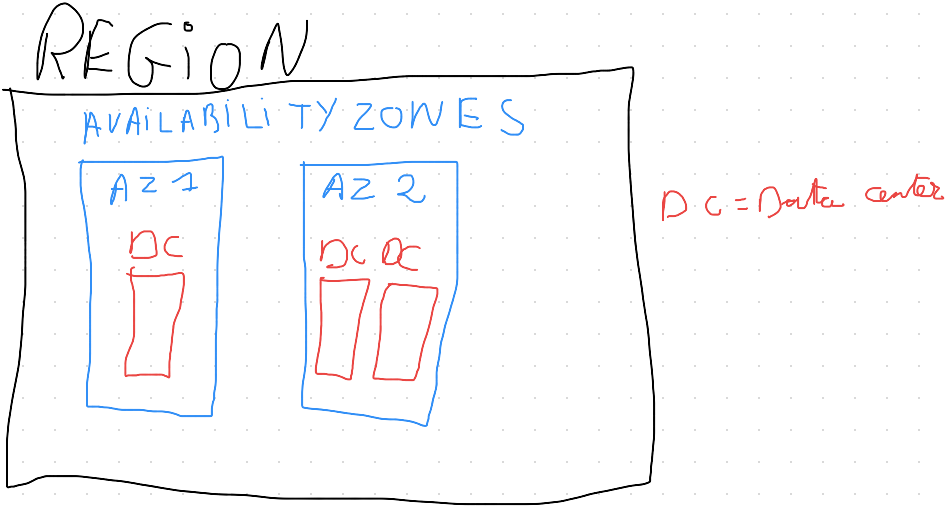 REGION
AVAILABILITY ZONES
AZ 1
AZ 2
DC
DC DC
DC = Data center